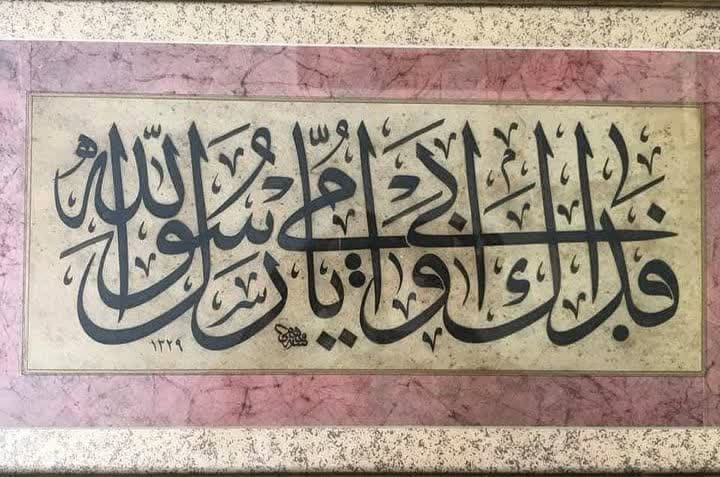 فداك ابي وامي يا رسول الله
١٣٢٩